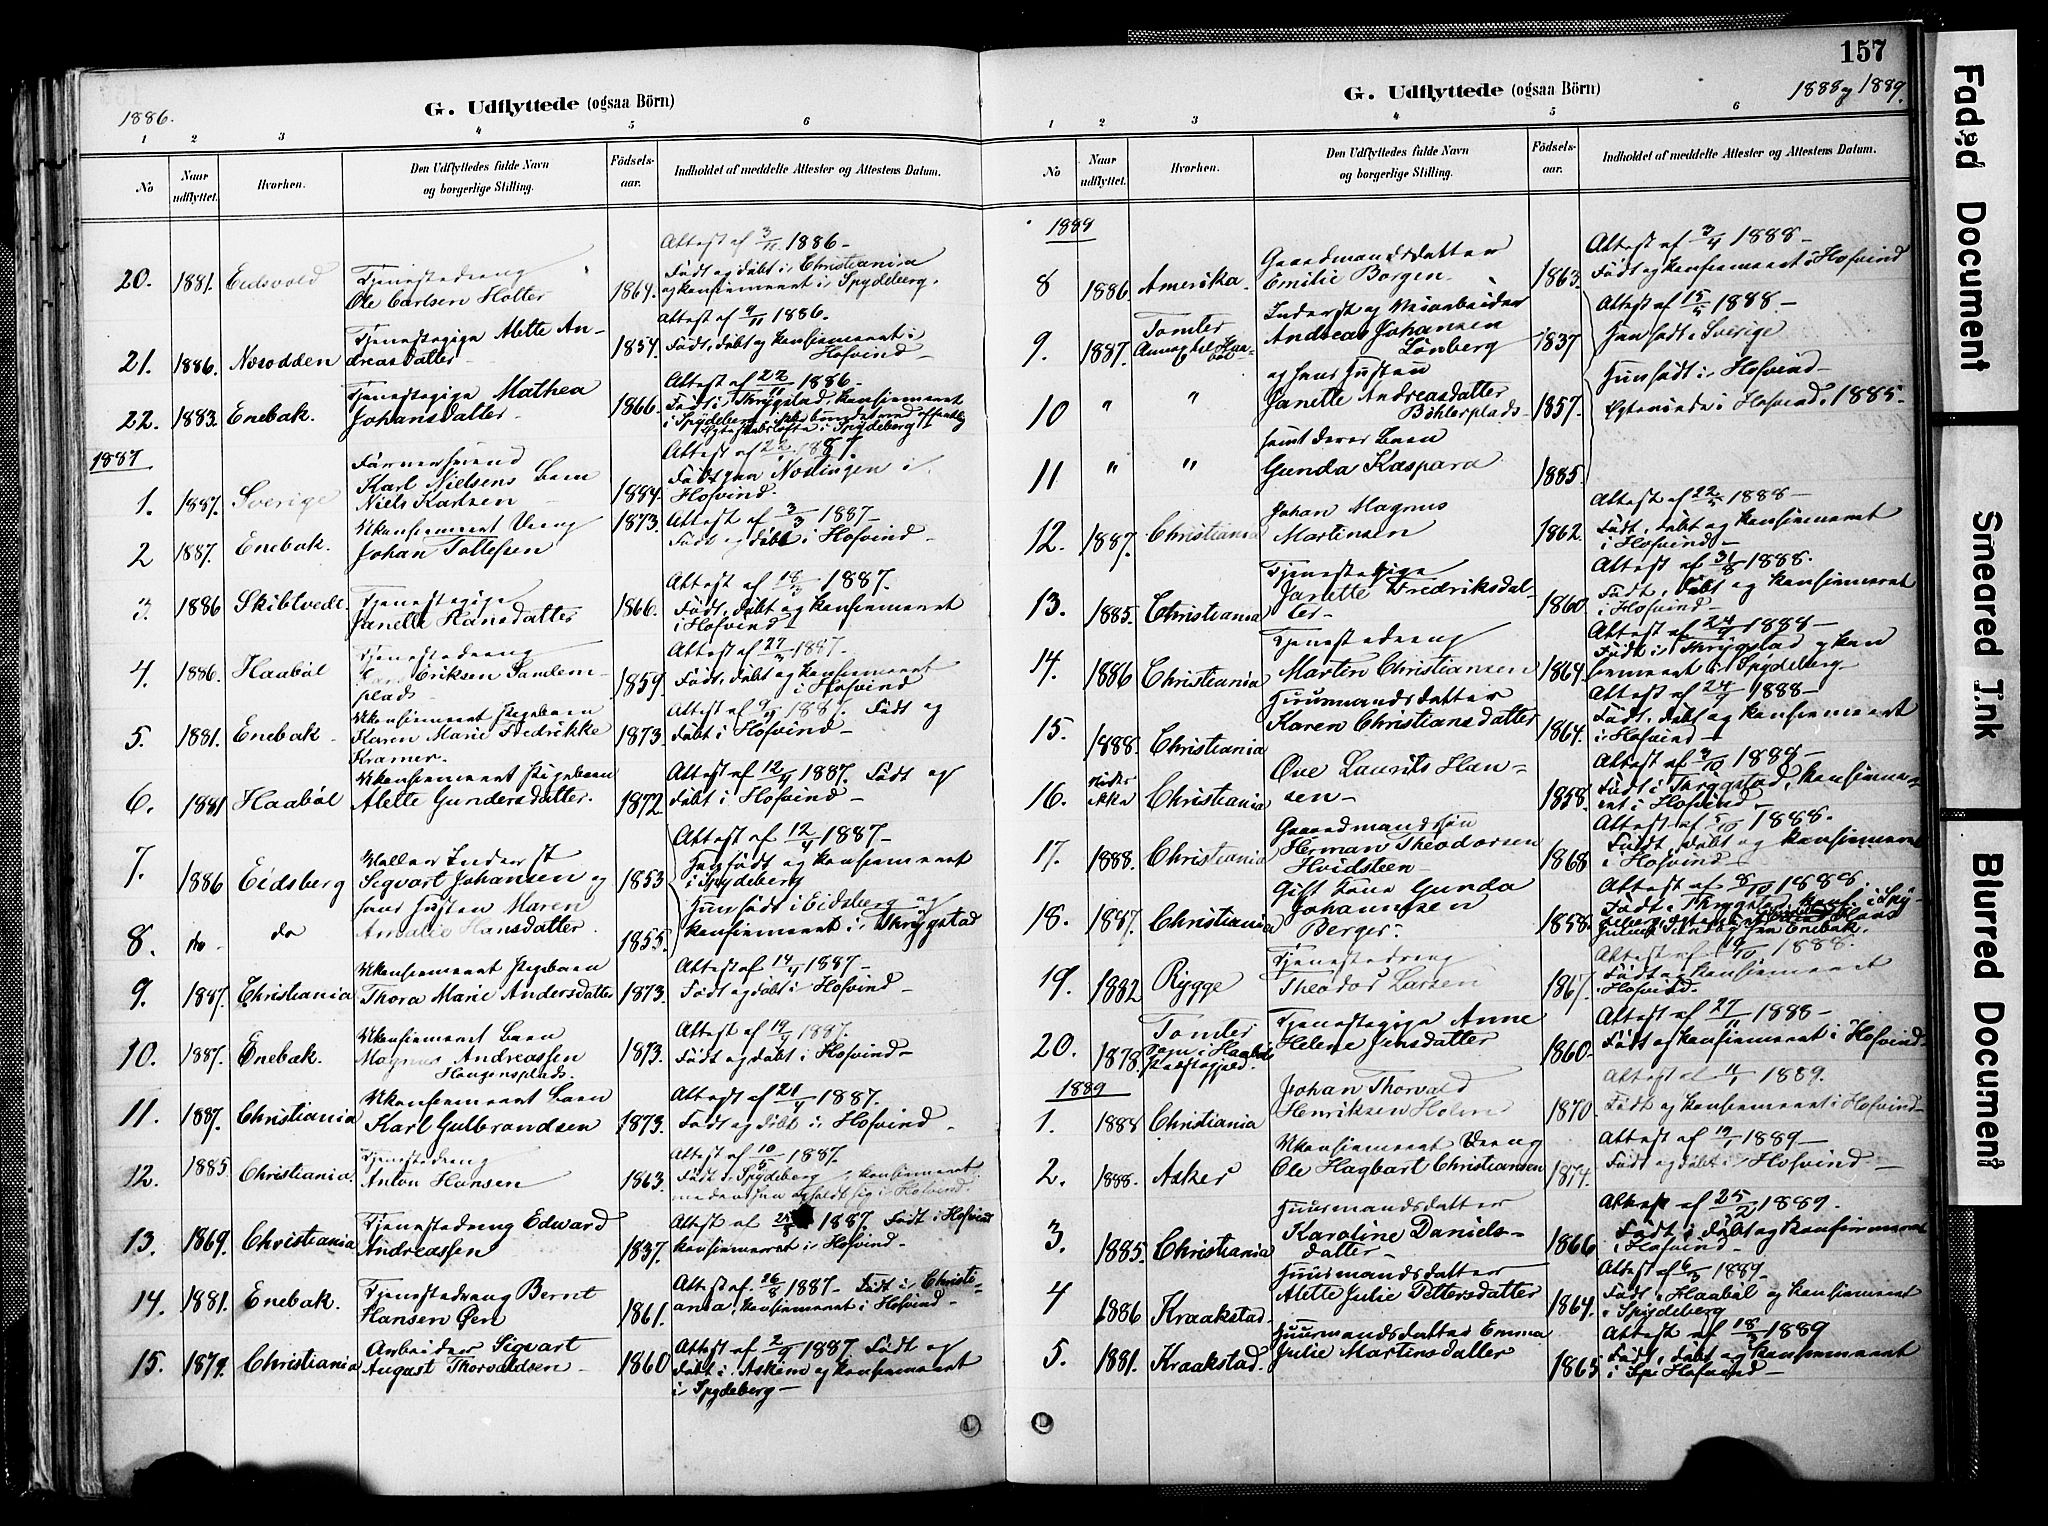 157
1886.
G. Udflyttede (ogsaa Börn)
1 2 3 4 5 6
No
Naar udflyttet.
Hvorhen.
Den Udflyttedes fulde Navn og borgerlige Stilling.
Födsels-aar.
Indholdet af meddelte Attester og Attestens Datum.
20. 1881. Eidsvold Tjenestedreng Ole Carlsen Holter 1864. Attest af 3/11 1886- Födt og döbt i Christiania og konfirmeret i Spydeberg.
21. 1886. Næsodden Tjenestepige Alette Andreasdatter- 1854. Attest af 9/11 1886. Födt, döbt og konfirmeret i Hofvind-
22. 1883. Enebak. Tjenestepige Mathea Johansdatter- 1866. Attest af 22/11 1886- Födt i Thrygstad, konfirmeret i Spydeberg
1887
1. 1887. Sverige Karl Nielsens Barn Niels Karlsen 1884. Attest af 22/1 1887. Hofvind.
2 1887. Enebak. Ukonfirmeret Dreng Johan Tollefsen 1873. Attest af 3/3 1887- Födt og döbt i Hofvind-
3. 1886 Skibtvedt. Tjenestepige Janette Hansdatter 1866. Attest af 18/3 1887. Födt, döbt og konfirmeret i Hofvind-
4. 1886. Haaböl Tjenestedreng Eriksen Sandemplads 1859. Attest af 27/3 1887. Födt, döbt og konfirmeret i Hofvind
5. 1881. Enebak Ukonfirmeret Pigebarn Karen Marie Fredrikke Kramer. 1873. 1887. Födt og döbt i Hofvind-
6. 1881 Haaböl Ukonfirmeret Pigebarn Alette Gundersdatter. 1872. Attest af 12/4 1887. Födt og döbt i Hofvind-
7. 1886 Eidsberg Inderst Segvart Johansen og 1853 Attest af 12/4 1887- Han födt og konfirmeret i Spydeberg
8. do do hans Hustru Maren Amalie Hansdatter 1855. Hun födt i Eidsberg og konfirmeret i Thrygstad
9. 1887. Christiania Ukonfirmeret Pigebarn Thora Marie Andersdatter 1873. Attest af 14/4 1887- Födt og döbt i Hofvind-
10. 1887. Enebak. Ukonfirmeret Barn Magnus Andreassen Haugensplads. 1873. Attest af 19/4 1887. Födt og döbt i Hofvind-
11. 1887. Christiania Ukonfirmeret Barn Karl Gulbrandsen 1873. Attest af 21/4 1887. Födt og döbt i Hofvind-
12. 1885. Christiania. Tjenestedreng Anton Hansen 1863. Attest af 10/5 1887. Födt i Spydeberg, konfirmeret i Hofvind.
13. 1869. Christiania Tjenestedreng Edward Andreassen 1837. Attest af 1887. Födt i Hofvind konfirmeret i Hofvind-
14. 1881. Enebak. Tjenestedreng Bernt Hansen Øen 1861. Attest af 16/8 1887- Födt i Christiania, konfirmeret i Hofvind-
15. 1879. Christiania Arbeider Sigvart August Thorvaldsen- 1860 Attest af 2/9 1887. Födt og döbt i Askim og konfirmeret i Spydeberg-
G. Udflyttede (ogsaa Börn)
1888 og 1889.
1 2 3 4 5 6
No
Naar udflyttet.
Hvorhen.
Den Udflyttedes fulde Navn og borgerlige Stilling.
Födsels-aar.
Indholdet af meddelte Attester og Attestens Datum.
8 1886 Amerika. Gaardmandsdatter Emilie Borgen- 1863. Attest af 3/4 1888- Födt og konfirmeret i Hofvind
9. 1887. Tomter Annex til Haaböl Inderst og Veiarbeider Andreas Johansen Lönberg 1837 Attest af 15/5 1888- Han födt i Sverige
10 " " og hans Hustru Janette Andreasdatter Böhlerplads- 1857. Hun födt i Hofvind- Ægteviede i Hofvind 1885-
11 " " samt deres Barn Gunda Kaspara 1885.
12. 1887. Christiania Johan Magnus Martinsen 1862. Attest af 22/5 1888- Födt, döbt og konfirmeret i Hofvind-
13. 1885. Christiania Tjenestepige Janette Fredriksdatter- 1860 Attest af 31/8 1888. Födt, döbt og konfirmeret i Hofvind-
14. 1886 Christiania Tjenestedreng Martin Christiansen 1864. Attest af 24/9 1888- Födt i Thrygstad og konfirmeret i Spydeberg
15. 1888. Christiania Huusmandsdatter Karen Christiansdatter 1864. Attest af 24/9 1888- Födt, döbt og konfirmeret i Hofvind-
16. Christiania Ove Laurits Hansen- 1858. Attest af 3/10 1888- Födt i Thrygstad, konfirmeret i Hofvind-
17. 1888. Christiania Gaardmandssön Herman Theodorsen Hvidsteen- 1868 Attest af 5/10 1888. Födt, döbt og konfirmeret i Hofvind
18. 1887. Christiania Gift Kone Gunda Johannesen Berger. 1858. Attest af 8/10 1888. Födt i Thrygstad
19. 1882 Rygge Tjenestedreng Theodor Larsen 1867. Attest af 19/10 1888. Födt og konfirmeret i Hofvind.
20. 1878. Tomter Sogn i Haaböl Tjenestepige Anne Helene Jensdatter 1860- Attest af 27/11 1888- Födt og konfirmeret i Hofvind-
1889
1. 1888 Christiania Johan Thorvald Henriksen Holm 1870 Attest af 11/1 1889. Födt og konfirmeret i Hofvind-
2. 1888. Asker Ukonfirmeret Dreng Ole Hagbart Christiansen 1874. Attest af 19/1 1889- Födt og döbt i Hofvind-
3. 1885. Christiania Huusmandsdatter Karoline Danielsdatter- 1866 Attest af 25/2 1889. Födt, döbt og konfirmeret i Hofvind-
4 1886 Kraakstad. Huusmandsdatter Alette Julie Pettersdatter 1864. Attest af 6/3 1889. Födt i Haaböl og konfirmeret i Spydeberg
5. 1881. Kraakstad. Huusmandsdatter Emma Julie Martinsdatter 1865 Attest af 18/3 1889 Födt, döbt og konfirmeret i Hofvind-
Faded Document
Smeared Ink
Blurred Document